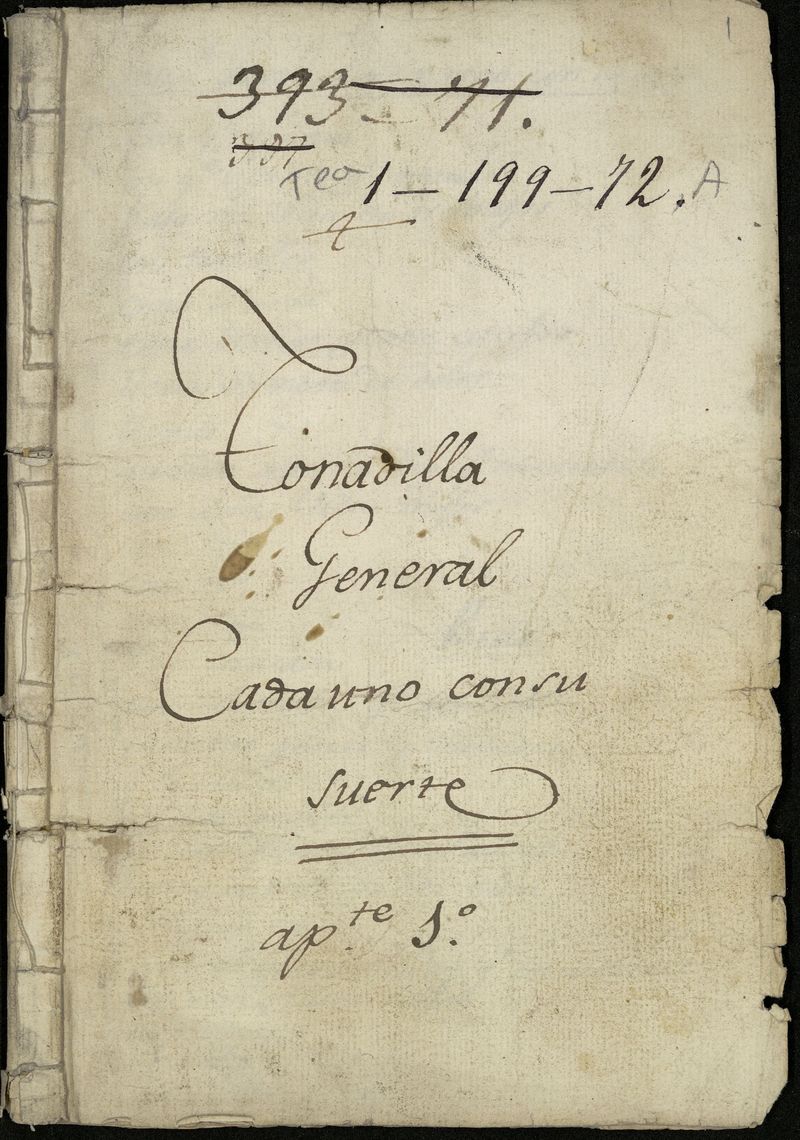 1
393 - 71.
Teo 1 - 199 - 72. A
4
Tonadilla
General
Cada uno consu
suerte
ap.te 1.o